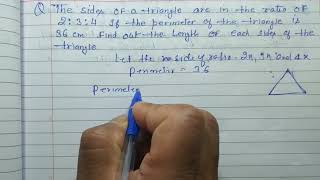 Q The sides of a triangle are in the ratio of
2:3:4. If the perimeter of the triangle is
36 cm. Find out the length of each sides of the
triangle
Let the side ratio 2x, 3x and 4x
Perimeter = 36
Perimeter